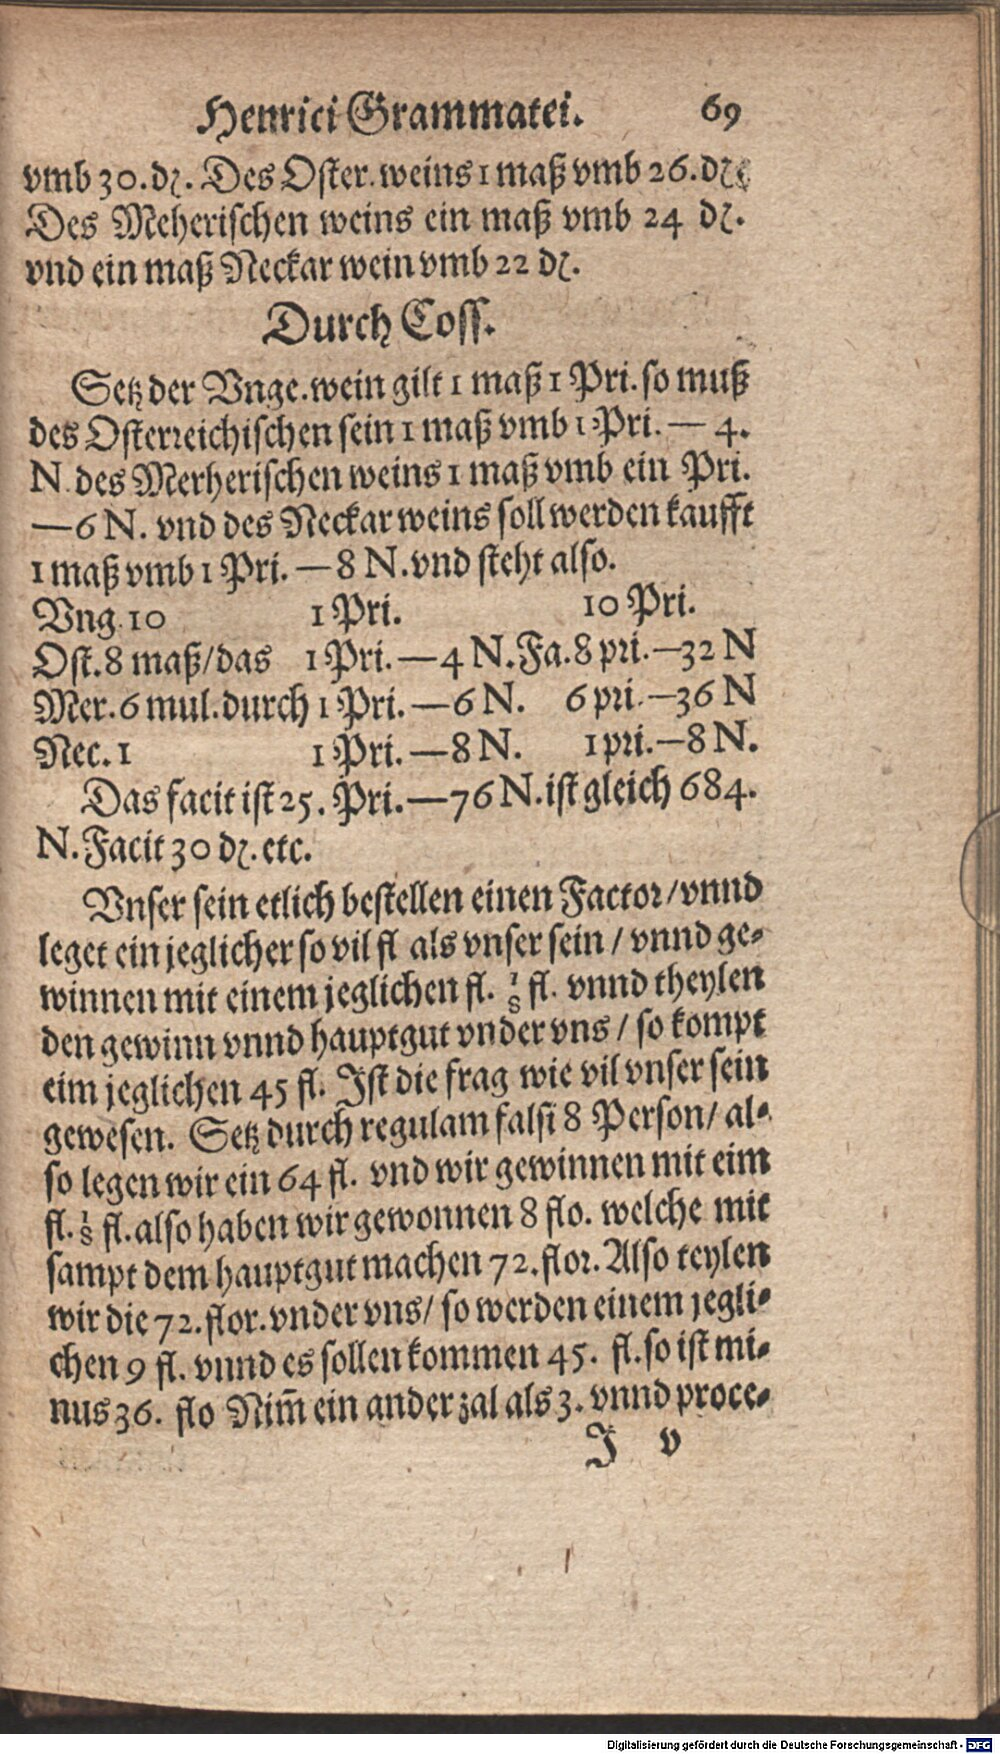 Henrici Grammatei. 69
vmb 30. dꝛ. Des Oster. weins 1 maß vmb 26. dꝛ
Des Meherischen weins ein maß vmb 24 dꝛ.
vnd ein maß Neckar wein vmb 22 dꝛ.
Durch Coss.
Setz der Vnge. wein gilt 1 maß 1 Pri. so muß
des Osterreichischen sein 1 maß vmb 1 Pri. — 4.
N. des Merherischen weins 1 maß vmb ein Pri.
—6 N. vnd des Neckar weins soll werden kaufft
1 maß vmb 1 Pri. — 8 N. vnd steht also.
Vng. 10 1 Pri. 10 Pri.
Ost. 8 maß/das 1 Pri. — 4 N. Fa. 8 pri. —32 N
Mer. 6 mul. durch 1 Pri. — 6 N. 6 pri. —36 N
Nec. 1 1 Pri. — 8 N. 1 pri. —8 N.
Das facit ist 25. Pri. —76 N. ist gleich 684.
N. Facit 30 dꝛ. etc.
Vnser sein etlich bestellen einen Factor/vnnd
leget ein jeglicher so vil fl als vnser sein / vnnd ge-
winnen mit einem jeglichen fl. 1/8 fl. vnnd theylen
den gewinn vnnd hauptgut vnder vns / so kompt
eim jeglichen 45 fl. Ist die frag wie vil vnser sein
gewesen. Setz durch regulam falsi 8 Person/ al-
so legen wir ein 64 fl. vnd wir gewinnen mit eim
fl. 1/8 fl. also haben wir gewonnen 8 flo. welche mit
sampt dem hauptgut machen 72. flor. Also teylen
wir die 72. flor. vnder vns/ so werden einem jegli-
chen 9 fl. vnnd es sollen kommen 45. fl. so ist mi-
nus 36. flo Nim̄ ein ander zal als 3. vnnd proce-
J v
Digitalisierung gefördert durch die Deutsche Forschungsgemeinschaft - DFG